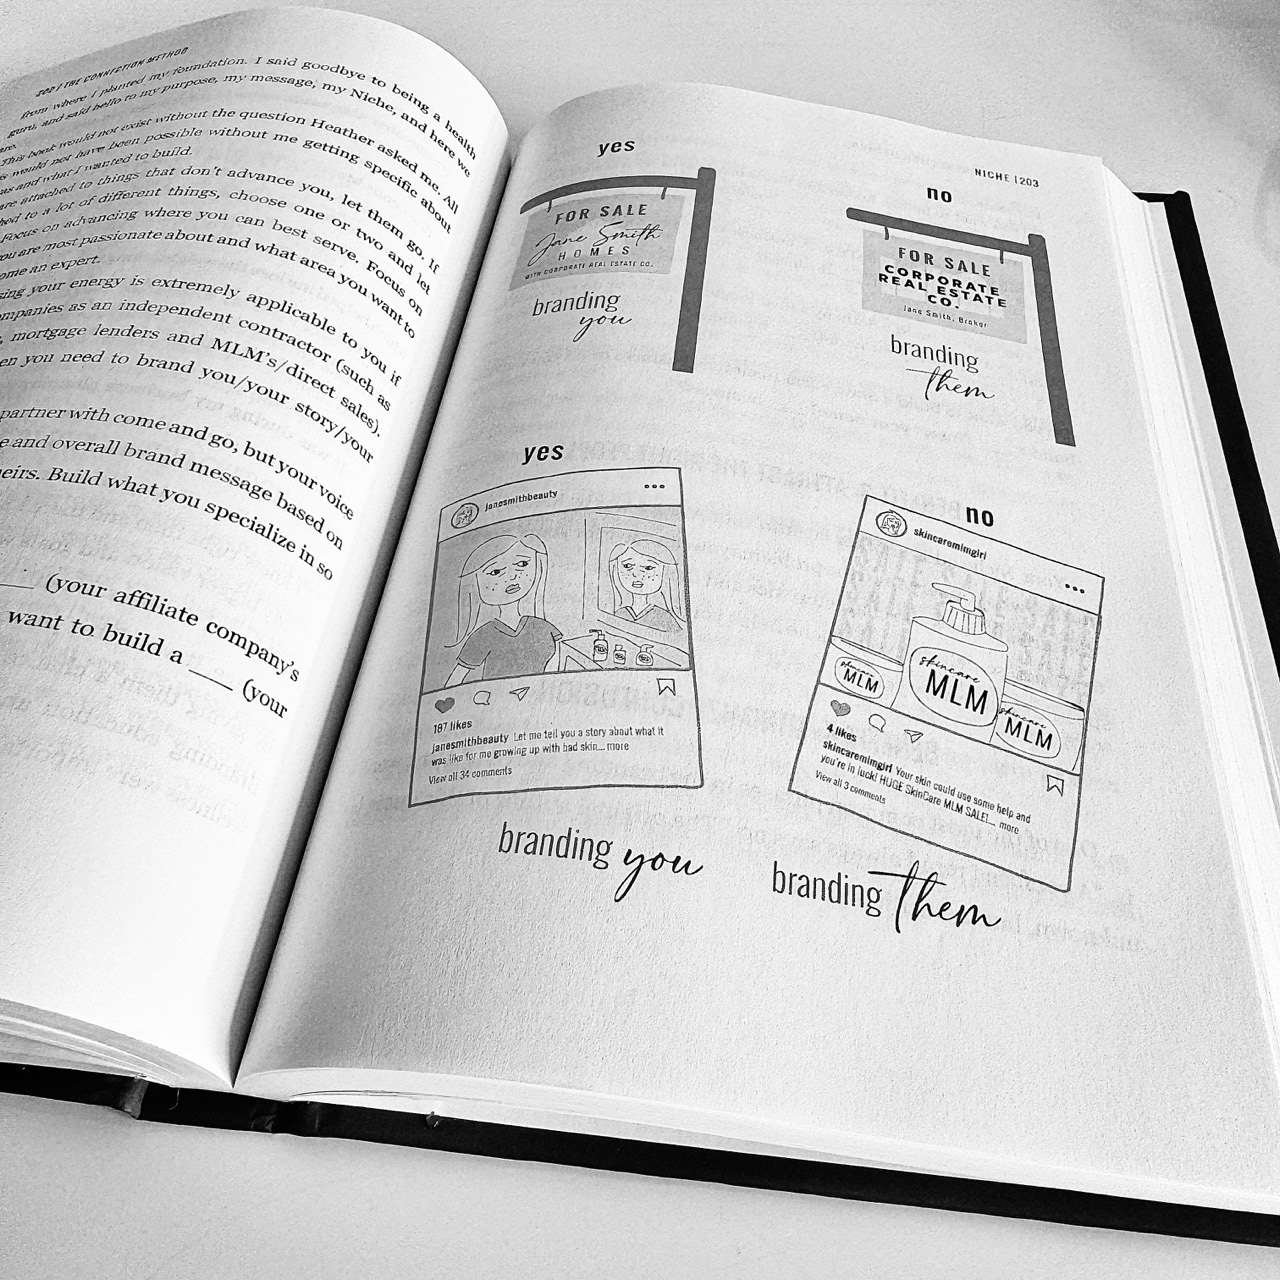 202 | THE CONNECTION METHOD
from where I planted my foundation. I said goodbye to being a health
guru, and said hello to my purpose, my message, my Niche, and here we
are.
This book would not exist without the question Heather asked me. All
would not have been possible without me getting specific about
as and what I wanted to build.
are attached to things that don't advance you, let them go. If
to a lot of different things, choose one or two and let
Focus on advancing where you can best serve. Focus on
you are most passionate about and what area you want to
an expert.
your energy is extremely applicable to you if
as an independent contractor (such as
mortgage lenders and MLM's/direct sales).
you need to brand you/your story/your
partner with come and go, but your voice
and overall brand message based on
Build what you specialize in so
____ (your affiliate company's
want to build a ____ (your
NICHE | 203
yes
FOR SALE
Jane Smith
HOMES
WITH CORPORATE REAL ESTATE CO.
branding
you
no
FOR SALE
CORPORATE
REAL ESTATE
CO.
Jane Smith, Broker
branding
them
yes
janesmithbeauty
187 likes
janesmithbeauty Let me tell you a story about what it
was like for me growing up with bad skin... more
View all 34 comments
branding you
no
skincaremlmgirl
skincare
MLM
skincare
MLM
skincare
MLM
4 likes
skincaremlmgirl Your skin could use some help and
you're in luck! HUGE SkinCare MLM SALE!... more
View all 3 comments
branding them